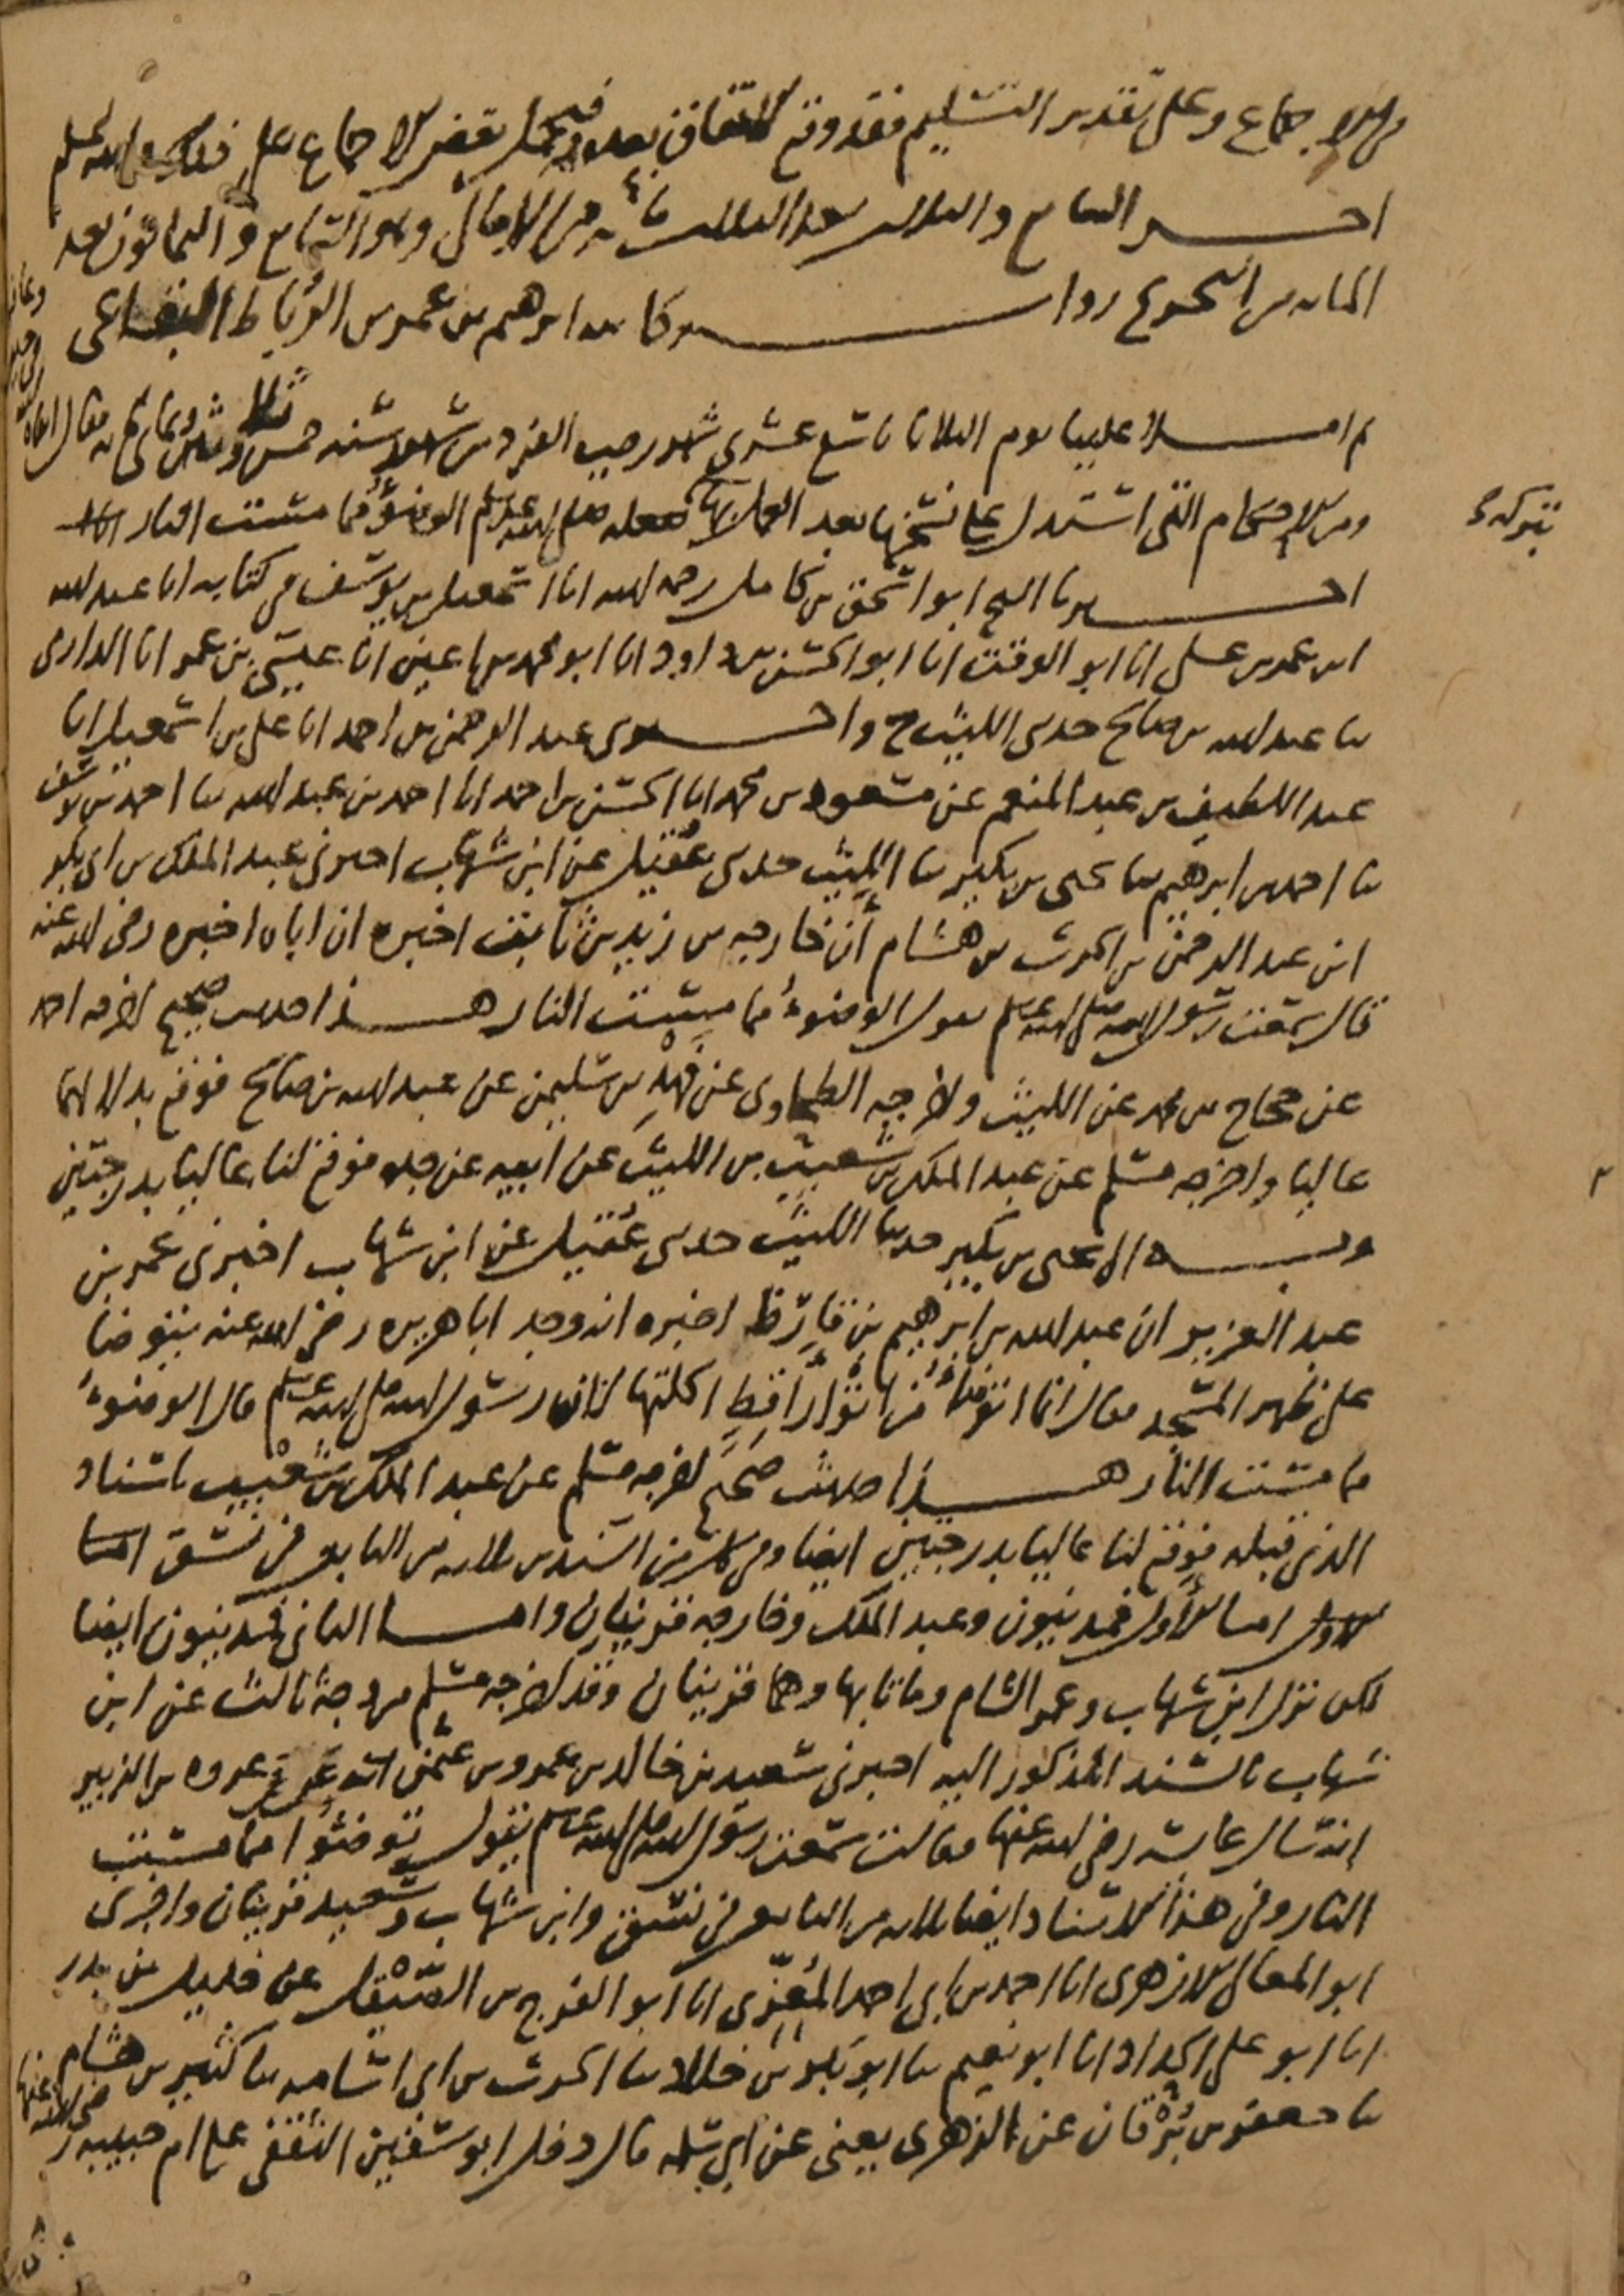 من الإجماع وعلى تقدير التسليم فقد وقع الاتفاق بعده فيحمل بعض الإجماع على ذلك والله أعلم
آخر السابع والثلاثين بعد الثلاث مائة من الأمالي وهو التاسع والثمانون بعد
المائة من التخريج رواية كاتبه ابرهيم بن عمر بن الرباط البقاعي
ثم املا علينا يوم الثلاثاء تاسع عشري شهر رجب الفرد من شهور سنة وثلثين وثماني مائة فقال
ومن الأحكام التي استدل على نسخها بعد العمل بها فعله صلى الله عليه وسلم الوضوء مما مست النار
اخبرنا الشيخ ابو اسحق بن كامل رحمه الله انا اسمعيل بن يوسف في كتابه انا عبد الله
ابن عمر بن علي انا ابو الوقت انا ابو الحسن بن داود انا ابو محمد بن اعين انا عيسى بن عمر انا الدارمي
ثنا عبد الله بن صالح حدثني الليث ح واخبرني عبد الرحمن بن احمد انا علي بن اسمعيل انا
عبد اللطيف بن عبد المنعم عن مسعود بن محمد انا الحسن بن احمد انا احمد بن عبد الله ثنا احمد بن يوسف
ثنا احمد بن ابرهيم ثنا يحيى بن بكير ثنا الليث حدثني عقيل عن ابن شهاب اخبرني عبد الملك بن ابي بكر
ابن عبد الرحمن بن الحرث بن هشام أن خارجه بن زيد بن ثابت اخبره ان اباه اخبره رضي الله عنه
قال سمعت رسول الله صلى الله عليه وسلم يقول الوضوء مما مست النار هذا حديث صحيح اخرجه احمد
عن حجاج بن محمد عن الليث واخرجه الطحاوي عن فهد بن سليمن عن عبد الله بن صالح فوقع بدلا لهما
عاليا واخرجه مسلم عن عبد الملك بن شعيب بن الليث عن ابيه عن جده فوقع لنا عاليا بدرجتين
وبه الى يحيى بن بكير حدثنا الليث حدثني عقيل عن ابن شهاب اخبرني عمر بن
عبد العزيز ان عبد الله بن ابرهيم بن قارظ اخبره انه وجد ابا هريره رضي الله عنه يتوضا
على ظهر المسجد فقال انما اتوضأ من اثوار أقط اكلتها لأن رسول الله صلى الله عليه وسلم قال الوضوء
مما مست النار هذا حديث صحيح اخرجه مسلم عن عبد الملك بن شعيب باسناد
الذي قبله فوقع لنا عاليا بدرجتين ايضا وفي كل من السندين ثلاثة من التابعين في نسق
اما الأول فمدنيون وعبد الملك وخارجه قرينان واما الثاني فمدنيون ايضا
لكن نزل ابن شهاب وعمر الشام وماتا بها وهما قرينان وقد اخرجه مسلم من وجه ثالث عن ابن
شهاب بالسند المذكور اليه اخبرني سعيد بن خالد بن عمرو بن عثمن انه عروة بن الزبير
انه سال عائشه رضي الله عنها فقالت سمعت رسول الله صلى الله عليه وسلم يقول توضئوا مما مست
النار وفي هذا الاسناد ايضا ثلاثة من التابعين في نسق وابن شهاب وسعيد قرينان واخبرني
ابو المعالي الازهري انا احمد بن ابي احمد المعزي انا ابو الفرج بن الصيقل عن خليل بن بدر
انا ابو علي الحداد انا ابو نعيم ثنا ابو بكر بن خلاد ثنا الحرث بن ابي اسامه ثنا كثير بن هشام
ثنا جعفر بن برقان عن الزهري يعني عن ابي سلمه قال دخل ابو سفين الثقفي على ام حبيبه رضي الله عنها